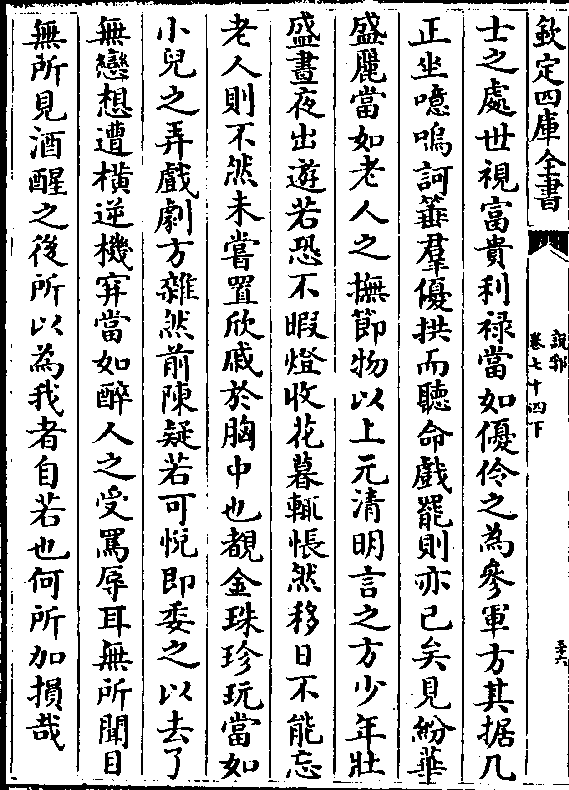 欽定四庫全書
說郛
卷七十四下
士之處世視富貴利祿當如優伶之為參軍方其据几
正坐噫嗚訶箠羣優拱而聽命戲罷則亦已矣見紛華
盛麗當如老人之撫節物以上元清明言之方少年壯
盛晝夜出遊若恐不暇燈收花暮輒悵然移日不能忘
老人則不然未嘗置欣戚於胸中也覩金珠珍玩當如
小兒之弄戲劇方雜然前陳疑若可悅即委之以去了
無戀想遭橫逆機穽當如醉人之受罵辱耳無所聞目
無所見酒醒之後所以為我者自若也何所加損哉